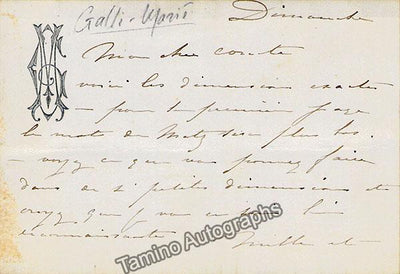 Dimanche
Galli-Marié
Mon cher comte
voici les dimensions exactes
pour la première page
le mot de plus bas.
voyez ce que vous pouvez faire
dans de si petites dimensions et
croyez que je vous en bien
reconnaissante
Tamino Autographs